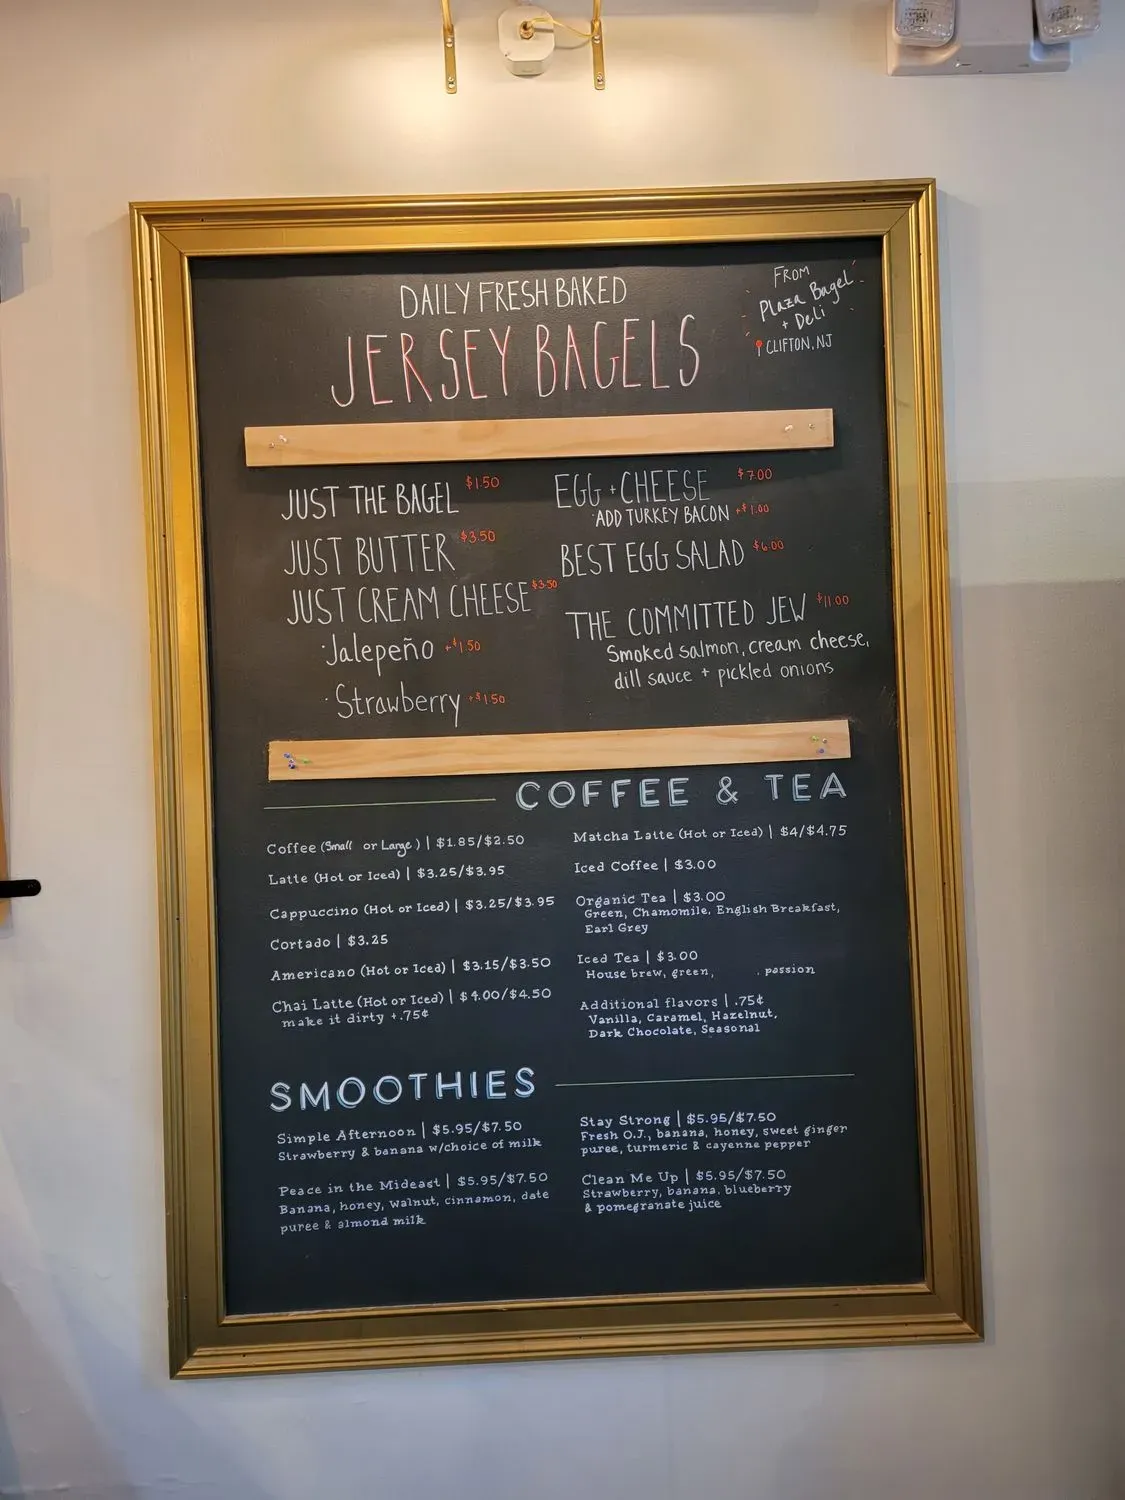 DAILY FRESH BAKED
JERSEY BAGELS
FROM
Plaza Bagel
+ Deli
CLIFTON, NJ
JUST THE BAGEL $1.50
JUST BUTTER $3.50
JUST CREAM CHEESE $3.50
·Jalepeño +$1.50
·Strawberry +$1.50
EGG + CHEESE $7.00
ADD TURKEY BACON +$1.00
BEST EGG SALAD $6.00
THE COMMITTED JEW $11.00
Smoked salmon, cream cheese,
dill sauce + pickled onions
COFFEE & TEA
Coffee (Small or Large) | $1.85/$2.50
Latte (Hot or Iced) | $3.25/$3.95
Cappuccino (Hot or Iced) | $3.25/$3.95
Cortado | $3.25
Americano (Hot or Iced) | $3.15/$3.50
Chai Latte (Hot or Iced) | $4.00/$4.50
make it dirty +.75¢
Matcha Latte (Hot or Iced) | $4/$4.75
Iced Coffee | $3.00
Organic Tea | $3.00
Green, Chamomile, English Breakfast,
Earl Grey
Iced Tea | $3.00
House brew, green, , passion
Additional flavors | .75¢
Vanilla, Caramel, Hazelnut,
Dark Chocolate, Seasonal
SMOOTHIES
Simple Afternoon | $5.95/$7.50
Strawberry & banana w/choice of milk
Peace in the Mideast | $5.95/$7.50
Banana, honey, walnut, cinnamon, date
puree & almond milk
Stay Strong | $5.95/$7.50
Fresh O.J., banana, honey, sweet ginger
puree, turmeric & cayenne pepper
Clean Me Up | $5.95/$7.50
Strawberry, banana, blueberry
& pomegranate juice